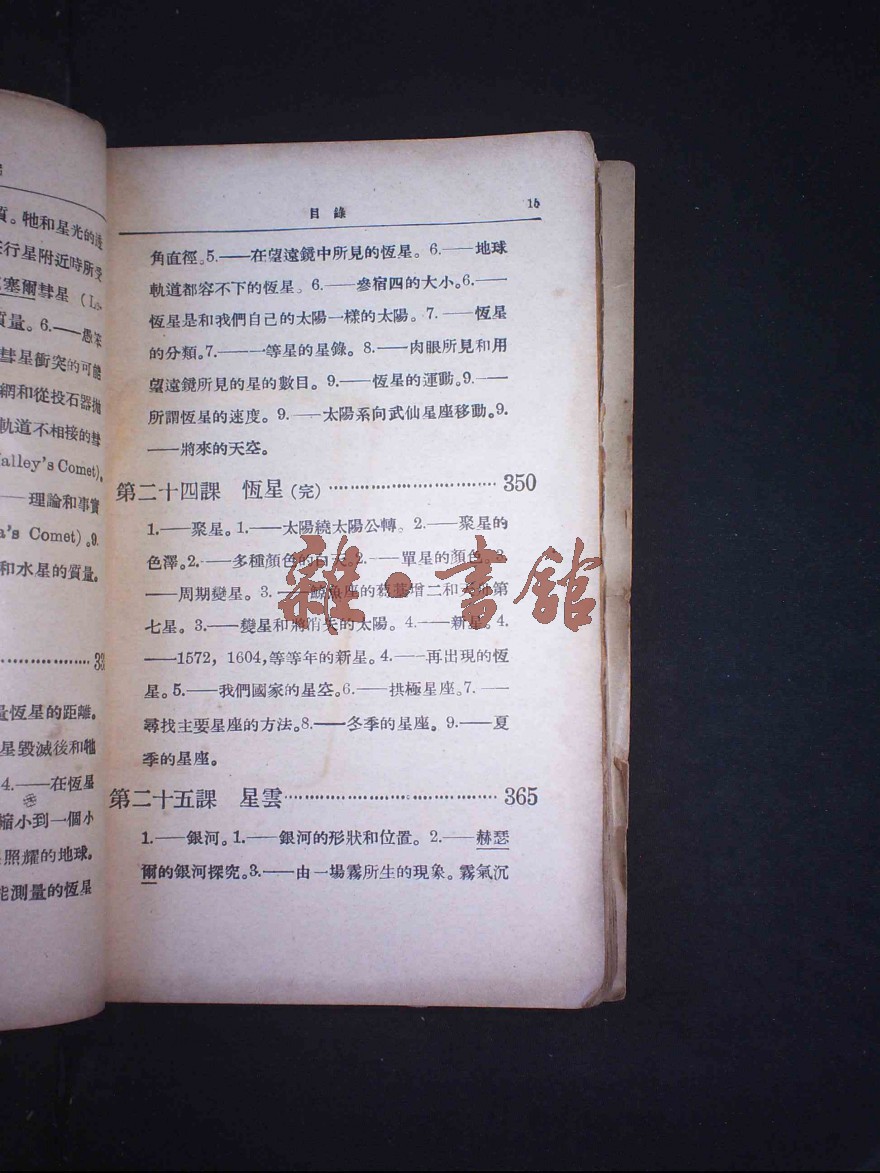 質。牠和星光的
行星附近時所受
塞爾彗星
質量。6.——愚笨
彗星衝突的可能
網和從投石器拋
軌道不相接的彗
alley's Comet)。
——理論和事實
a's Comet)。9.
和水星的質量。
量恆星的距離。
星毀滅後和牠
4.——在恆星
縮小到一個小
照耀的地球。
能測量的恆星
目錄 15
角直徑。5.——在望遠鏡中所見的恆星。6.——地球
軌道都容不下的恆星。6.——參宿四的大小。6.——
恆星是和我們自己的太陽一樣的太陽。7.——恆星
的分類。7.——一等星的星錄。8.——肉眼所見和用
望遠鏡所見的星的數目。9.——恆星的運動。9.——
所謂恆星的速度。9.——太陽系向武仙星座移動。9.
——將來的天空。
第二十四課 恆星(完)…………………………350
1.——聚星。1.——太陽繞太陽公轉。2.——聚星的
色澤。2.——多種顏色的白天。2.——單星的顏色。3.
——周期變星。3.——鯨魚座的蒭藁增二和天船第
七星。3.——變星和將消失的太陽。4.——新星。4.
——1572, 1604,等等年的新星。4.——再出現的恆
星。5.——我們國家的星空。6.——拱極星座。7.——
尋找主要星座的方法。8.——冬季的星座。9.——夏
季的星座。
第二十五課 星雲…………………………………365
1.——銀河。1.——銀河的形狀和位置。2.——赫瑟
爾的銀河探究。3.——由一場霧所生的現象。霧氣沉
雜·書館